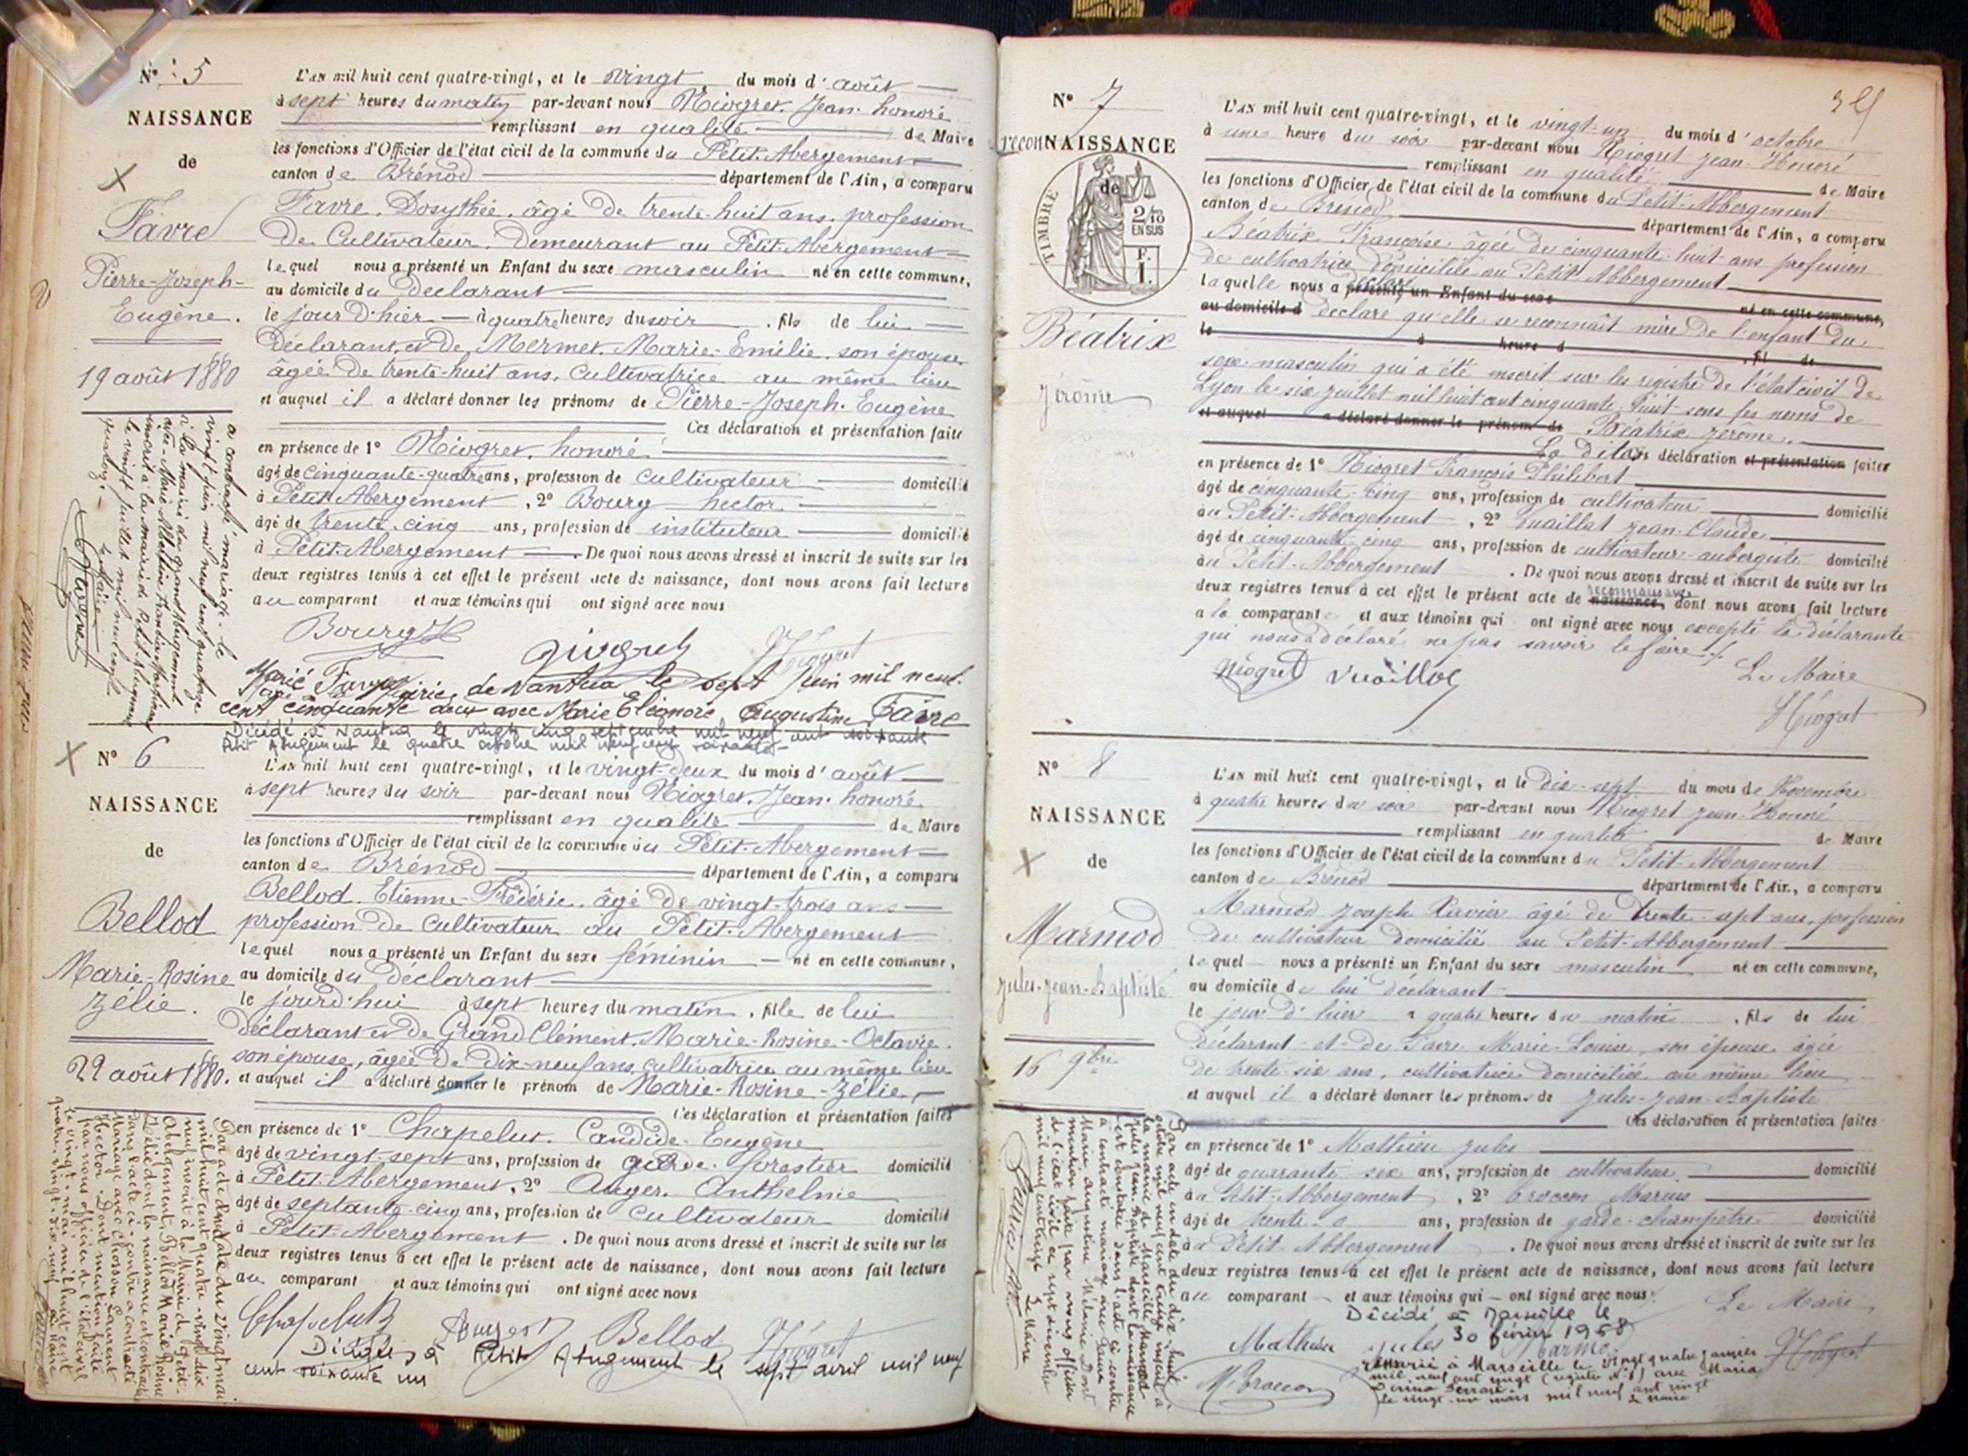 N° 5
NAISSANCE
de
Favre
Pierre-Joseph-
Eugène.
19 août 1880
L'an mil huit cent quatre-vingt, et le vingt du mois d'août
à sept heures du matin par-devant nous Niogret Jean honoré
remplissant en qualité de Maire
les fonctions d'Officier de l'état civil de la commune du Petit-Abergement
canton de Brénod département de l'Ain, a comparu
Favre, Dosythée, âgé de trente-huit ans, profession
de Cultivateur demeurant au Petit-Abergement
lequel nous a présenté un Enfant du sexe masculin né en cette commune,
au domicile du déclarant
le jour d'hier à quatre heures du soir, fils de lui
déclarant et de Mermet, Marie-Emilie, son épouse
âgée de trente-huit ans, cultivatrice au même lieu
et auquel il a déclaré donner les prénoms de Pierre-Joseph-Eugène
Ces déclaration et présentation faites
en présence de 1° Niogret, honoré
âgé de cinquante-quatre ans, profession de cultivateur domicilié
à Petit-Abergement, 2° Bourg hector
âgé de trente-cinq ans, profession de instituteur domicilié
à Petit-Abergement. De quoi nous avons dressé et inscrit de suite sur les
deux registres tenus à cet effet le présent acte de naissance, dont nous avons fait lecture
au comparant et aux témoins qui ont signé avec nous
a contracté mariage le
vingt juin mil neuf cent quatorze
à la mairie du grand Abergement
avec Marie
inscrit à la mairie de Petit-Abergement
le vingt juillet mil neuf cent
quatorze
Le Maire
Bourg H
Niogret
Marié Favre Mairie de Nantua le sept Juin mil neuf
cent cinquante deux avec Marie Eléonore Augustine Favre
Décédé à Nantua le vingt cinq septembre mil neuf cent soixante
Petit Abergement le quatre octobre mil neuf cent soixante
N° 6
NAISSANCE
de
Bellod
Marie-Rosine
Zélie.
22 août 1880.
L'an mil huit cent quatre-vingt, et le vingt-deux du mois d'août
à sept heures du soir par-devant nous Niogret, Jean honoré
remplissant en qualité de Maire
les fonctions d'Officier de l'état civil de la commune du Petit-Abergement
canton de Brénod département de l'Ain, a comparu
Bellod Etienne-Frédéric, âgé de vingt-trois ans
profession de Cultivateur au Petit-Abergement
lequel nous a présenté un Enfant du sexe féminin né en cette commune,
au domicile du déclarant
le jourd'hui à sept heures du matin, fille de lui
déclarant et de Grand Clément, Marie-Rosine-Octavie
son épouse, âgée de dix-neuf ans, cultivatrice au même lieu
et auquel il a déclaré donner le prénom de Marie-Rosine-Zélie
Ces déclaration et présentation faites
en présence de 1° Chapelut, Candide-Eugène
âgé de vingt-sept ans, profession de garde-forestier domicilié
à Petit-Abergement, 2° Auger Anthelme
âgé de septante-cinq ans, profession de cultivateur domicilié
à Petit-Abergement. De quoi nous avons dressé et inscrit de suite sur les
deux registres tenus à cet effet le présent acte de naissance, dont nous avons fait lecture
au comparant et aux témoins qui ont signé avec nous
Par acte de du vingt mai
mil huit cent quatre vingt dix
neuf inscrit à la Mairie de Petit-
Abergement, Bellod Marie Rosine
Zélie dont la naissance est constatée
dans l'acte ci-contre a contracté
Mariage avec Chosson Laurent
Hector. Dont mention faite
par nous officier de l'état civil
le vingt mai mil huit cent
quatre-vingt-dix-neuf Le Maire
Bellod
Décédée à Petit Abergement le sept avril mil neuf
cent soixante un
N° 7
reconNAISSANCE
TIMBRE
de
2/10
EN SUS
F.
1.
Béatrix
Jérôme
L'an mil huit cent quatre-vingt, et le vingt-un du mois d'octobre
à une heure du soir par-devant nous Niogret Jean-Honoré
remplissant en qualité de Maire
les fonctions d'Officier de l'état civil de la commune du Petit-Abbergement
canton de Brenod département de l'Ain, a comparu
Béatrix Françoise âgée de cinquante-huit ans profession
de cultivatrice domiciliée au Petit-Abbergement
laquelle nous a présenté un Enfant du sexe né en cette commune,
au domicile d déclaré qu'elle se reconnaît mère de l'enfant du
le à heure d, fil de
sexe masculin qui a été inscrit sur les registre de l'état civil de
Lyon le six juillet mil huit cent cinquante-huit sous les noms de
et auquel a déclaré donner le prénom de Béatrix Jérôme.
La dite déclaration et présentation faites
en présence de 1° Niogret François Philibert
âgé de cinquante-cinq ans, profession de cultivateur domicilié
au Petit-Abbergement, 2° Vuaillat Jean-Claude
âgé de cinquante-cinq ans, profession de cultivateur-aubergiste domicilié
au Petit-Abbergement. De quoi nous avons dressé et inscrit de suite sur les
deux registres tenus à cet effet le présent acte de naissance, reconnaissance dont nous avons fait lecture
a la comparante et aux témoins qui ont signé avec nous excepté la déclarante
qui nous a déclaré ne pas savoir le faire.
Niogret Vuaillat
Le Maire
Niogret
N° 8
NAISSANCE
de
Marmod
Jules-Jean-Baptiste
16 9bre
L'an mil huit cent quatre-vingt, et le dix-sept du mois de Novembre
à quatre heures du soir par-devant nous Niogret Jean-Honoré
remplissant en qualité de Maire
les fonctions d'Officier de l'état civil de la commune du Petit-Abbergement
canton de Brénod département de l'Ain, a comparu
Marmod Joseph Xavier âgé de trente-sept ans, profession
de cultivateur domicilié au Petit-Abbergement
lequel nous a présenté un Enfant du sexe masculin né en cette commune,
au domicile de lui déclarant
le jour d'hier à quatre heures du matin, fils de lui
déclarant et de Favre Marie-Louise, son épouse âgée
de trente-six ans, cultivatrice domiciliée au même lieu
et auquel il a déclaré donner les prénoms de Jules-Jean-Baptiste
Ces déclaration et présentation faites
en présence de 1° Mathieu Jules
âgé de quarante-six ans, profession de cultivateur domicilié
au Petit-Abbergement, 2° Broccon Marius
âgé de trente ans, profession de garde-champêtre domicilié
au Petit-Abbergement. De quoi nous avons dressé et inscrit de suite sur les
deux registres tenus à cet effet le présent acte de naissance, dont nous avons fait lecture
au comparant et aux témoins qui ont signé avec nous.
Par acte en date du dix huit
octobre mil neuf cent treize inscrit à
la mairie de Marseille, Marmod
Jules Jean Baptiste dont la naissance
est constatée dans l'acte ci-contre
a contracté mariage avec
Marie Augustine Mélanie Dont
mention faite par nous officier
de l'état civil ce sept décembre
mil neuf cent treize
Le Maire
Le Maire
Décédé à Marseille le
30 février 1958
Mathieu Jules Marmod
M Broccon
Niogret
remarié à Marseille le vingt quatre janvier
mil neuf cent vingt (registre N°) avec Maria
Le vingt-un mars mil neuf cent vingt
Le Maire